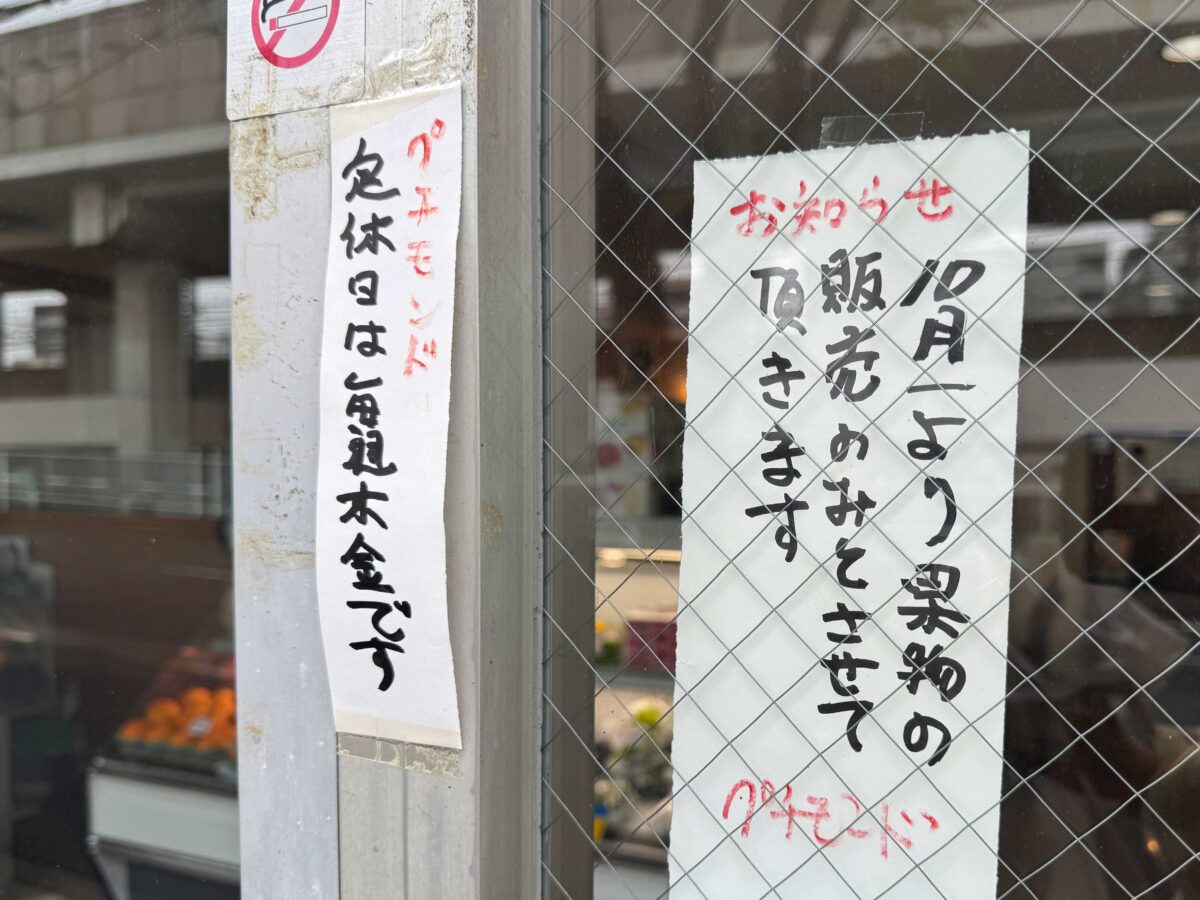 プチモンド
定休日は毎週木金です
お知らせ
10月一より果物の
販売のみとさせて
頂きます
プチモンド